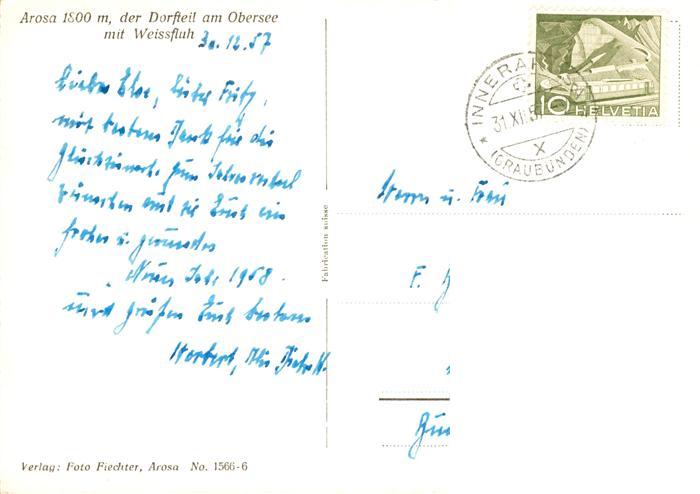 Arosa 1800 m, der Dorfteil am Obersee
mit Weissfluh
30.12.57
Liebe Else, lieber Fritz,
mit bestem Dank für die
Glückwünsche zum Jahreswechsel
wünschen auch wir Euch ein
frohes u. gesundes
Neues Jahr 1958.
und grüßen Euch bestens
Norbert,
Verlag: Foto Fiechter, Arosa No. 1566-6
Fabrication suisse
* INNERAROSA *
31.XII.57
X
(GRAUBÜNDEN)
10 HELVETIA
Herrn u. Frau
F.